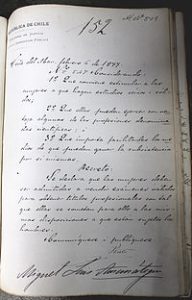 152
REPÚBLICA DE CHILE
Viña del Mar, febrero 6 de 1877.
Considerando:
1º Que conviene estimular a las
mujeres a que hagan estudios serios i só-
lidos;
2º Que ellas pueden ejercer con ven-
taja algunas de las profesiones denomina-
das científicas;
3º Que importa facilitarles los me-
dios de que puedan ganar la subsistencia
por sí mismas,
Decreto:
Se declara que las mujeres deben
ser admitidas a rendir exámenes válidos
para obtener títulos profesionales, con tal
que ellas se sometan para ello a las mis-
mas disposiciones a que están sujetos los
hombres.
Comuníquese i publíquese
Miguel Luis Amunátegui